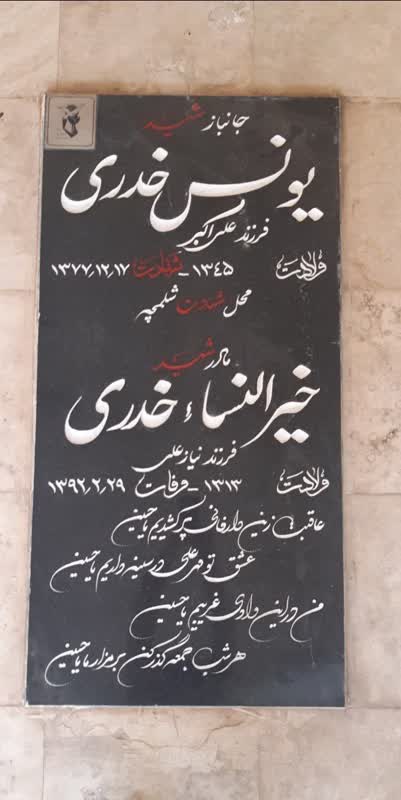 جانباز شهید
یونس خدری
فرزند علی اکبر
ولادت ۱۳۴۵ - شهادت ۱۳۷۷/۱۲/۱۷
محل شهادت شلمچه
مادر شهید
خیرالنساء خدری
فرزند نیازعلی
ولادت ۱۳۱۳ - وفات ۱۳۹۲/۲/۲۹
عاقبت زین دار فانی پر کشیدیم یا حسین
عشق تو مهر علی در سینه داریم یا حسین
من در این وادی غریبم یا حسین
هر شب جمعه گذر کن بر مزار ما یا حسین